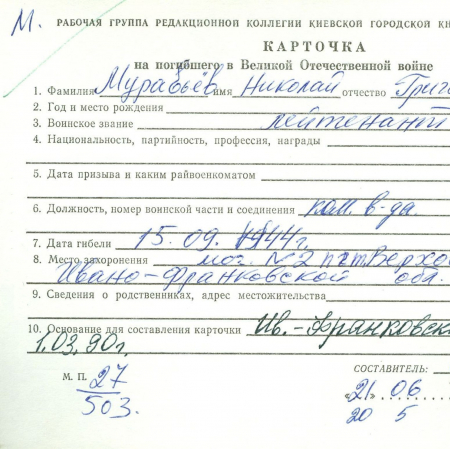 М. РАБОЧАЯ ГРУППА РЕДАКЦИОННОЙ КОЛЛЕГИИ КИЕВСКОЙ ГОРОДСКОЙ КН
КАРТОЧКА
на погибшего в Великой Отечественной войне
1. Фамилия Муравьёв имя Николай отчество Григ
2. Год и место рождения
3. Воинское звание лейтенант
4. Национальность, партийность, профессия, награды
5. Дата призыва и каким райвоенкоматом
6. Должность, номер воинской части и соединения ком. в-да.
7. Дата гибели 15.09.1944г.
8. Место захоронения мог. №2 пгт Верхо
Ивано-Франковской обл.
9. Сведения о родственниках, адрес местожительства
10. Основание для составления карточки Ив.-Франковск
1.03.90г.
СОСТАВИТЕЛЬ:
М. П. 27
503.
«21» 06
20 5